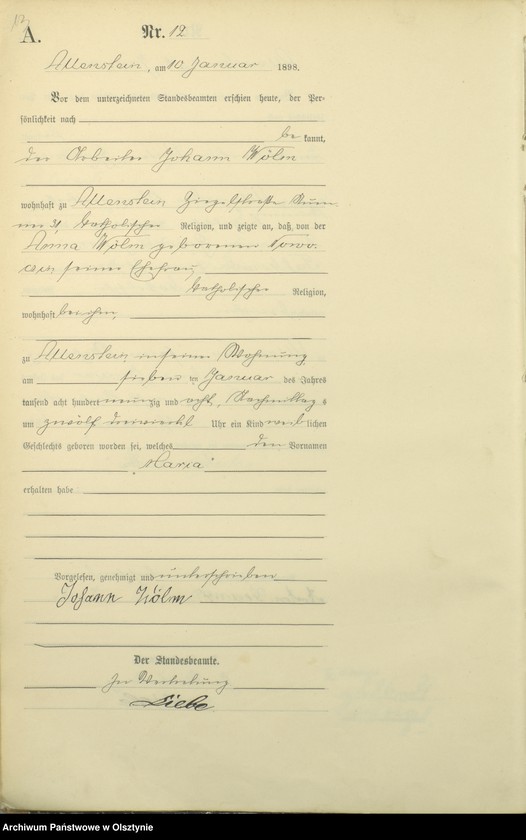 12
A.
Nr. 12
Allenstein, am 10 Januar 1898.
Vor dem unterzeichneten Standesbeamten erschien heute, der Per-
sönlichkeit nach
be kannt,
der Arbeiter Johann Wölm
wohnhaft zu Allenstein Ziegelstraße Num
mer 31, katholischer Religion, und zeigte an, daß von der
Anna Wölm geborenen
seiner Ehefrau,
katholischer Religion,
wohnhaft bei ihm,
zu Allenstein in seiner Wohnung
am sieben ten Januar des Jahres
tausend acht hundert neunzig und acht, Nachmittag s
um zwölf dreiviertel Uhr ein Kind weiblichen
Geschlechts geboren worden sei, welches den Vornamen
"Maria"
erhalten habe
Vorgelesen, genehmigt und unterschrieben
Johann Wölm
Der Standesbeamte.
In Vertretung
Liebe
Archiwum Państwowe w Olsztynie